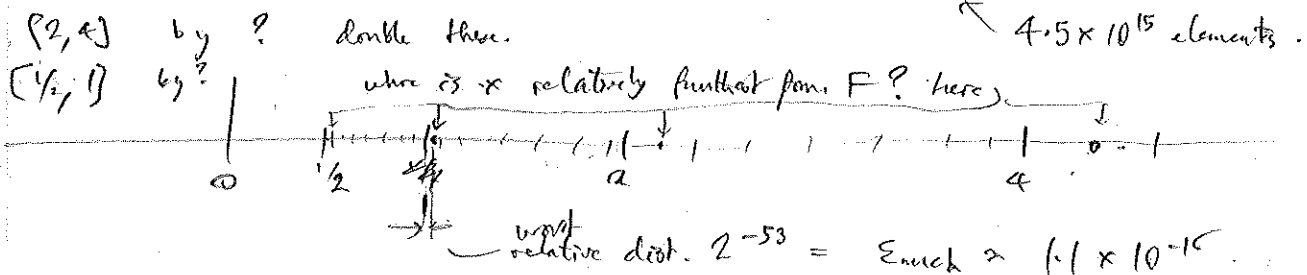 [2,4] by ? double these. 4.5 × 10^15 elements.
[1/2, 1] by? where is x relatively furthest from F? here
0 1/2 2 4
worst
relative dist. 2^-53 = Emach ≈ 1.1 × 10^-16